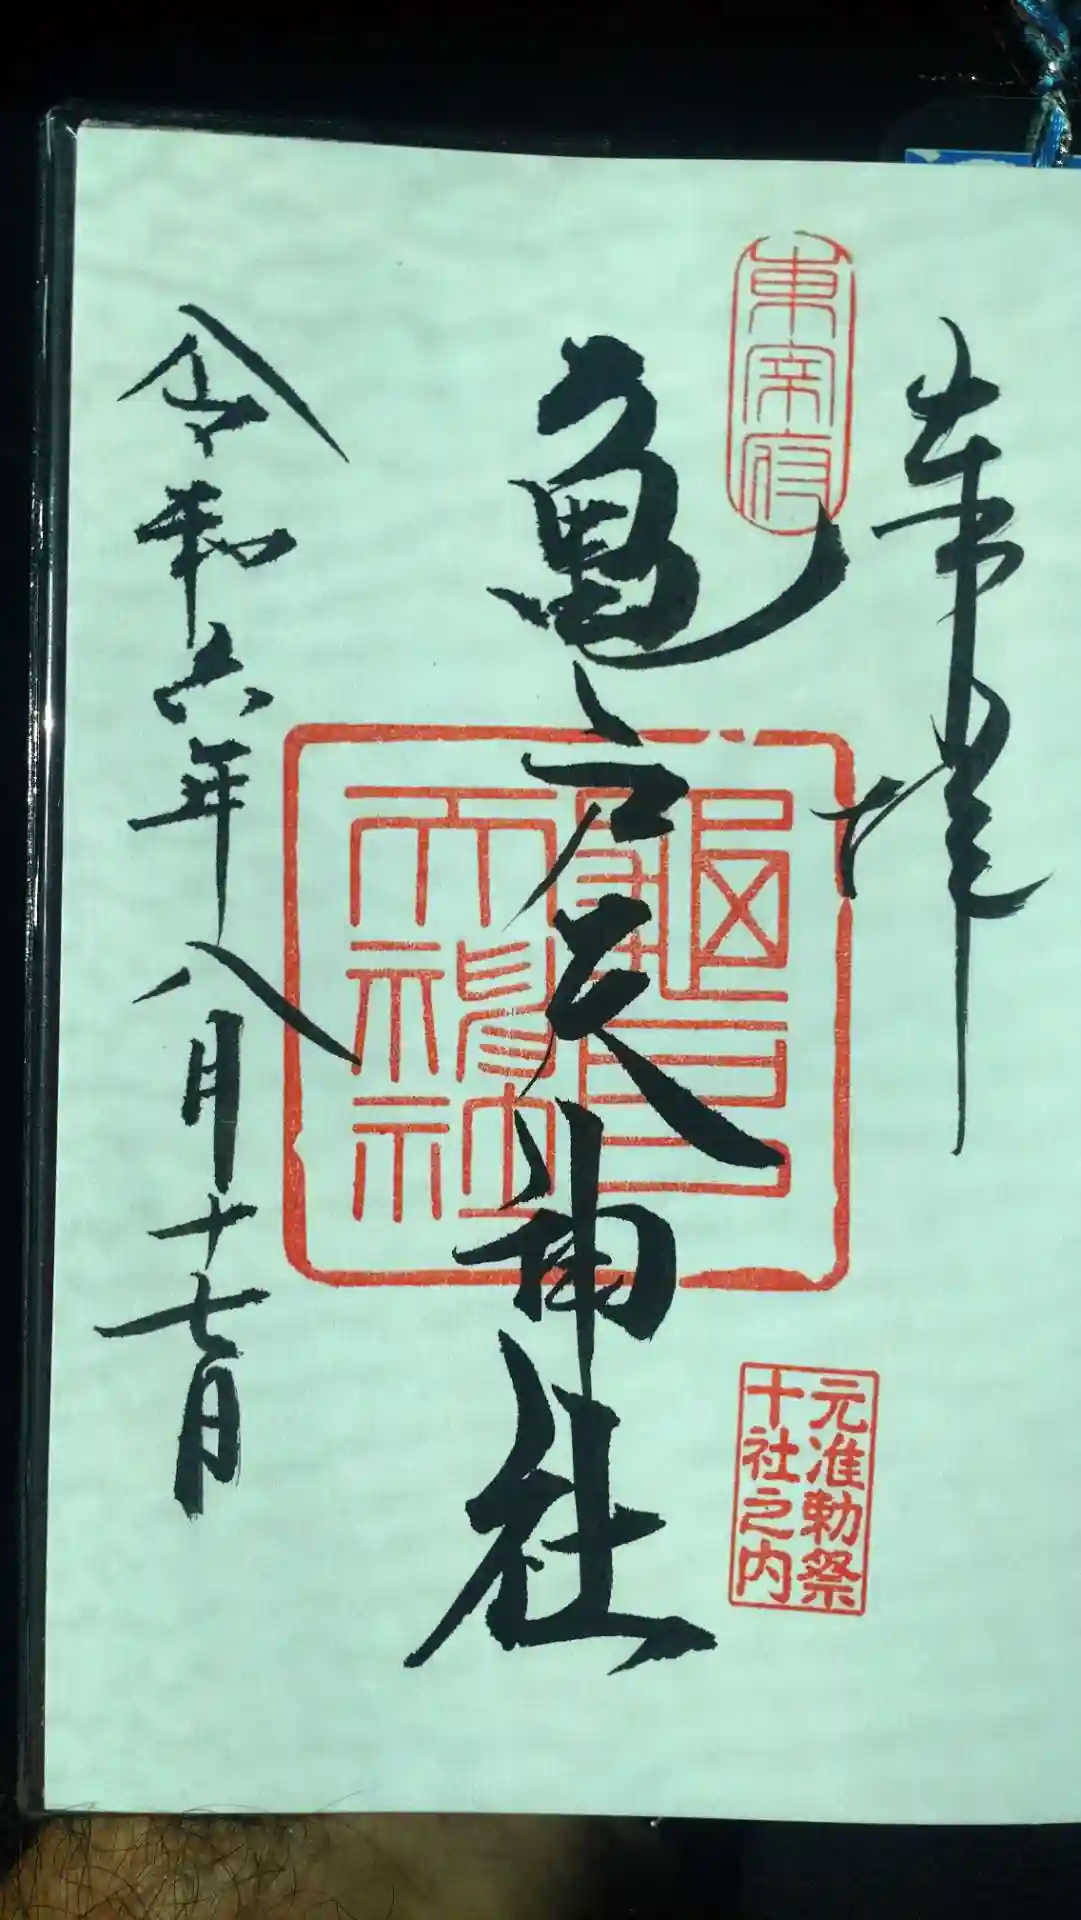 奉拝
東宰府
亀戸天神社
龜戸天神社
元准勅祭
十社之内
令和六年八月十七日